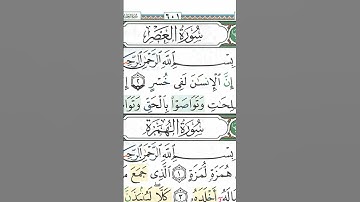 ٦٠١
سُورَةُ العَصْرِ
بِسْمِ اللَّهِ الرَّحْمَٰنِ الرَّحِيمِ
إِنَّ الْإِنسَانَ لَفِي خُسْرٍ ٢
لِحَاتِ وَتَوَاصَوْا بِالْحَقِّ وَتَوَا
سُورَةُ الهُمَزَةِ
بِسْمِ اللَّهِ الرَّحْمَٰنِ الرَّحِيمِ
هُمَزَةٍ لُّمَزَةٍ ١ الَّذِي جَمَعَ
أَخْلَدَهُ ٣ كَلَّا لَيُنبَذَنَّ